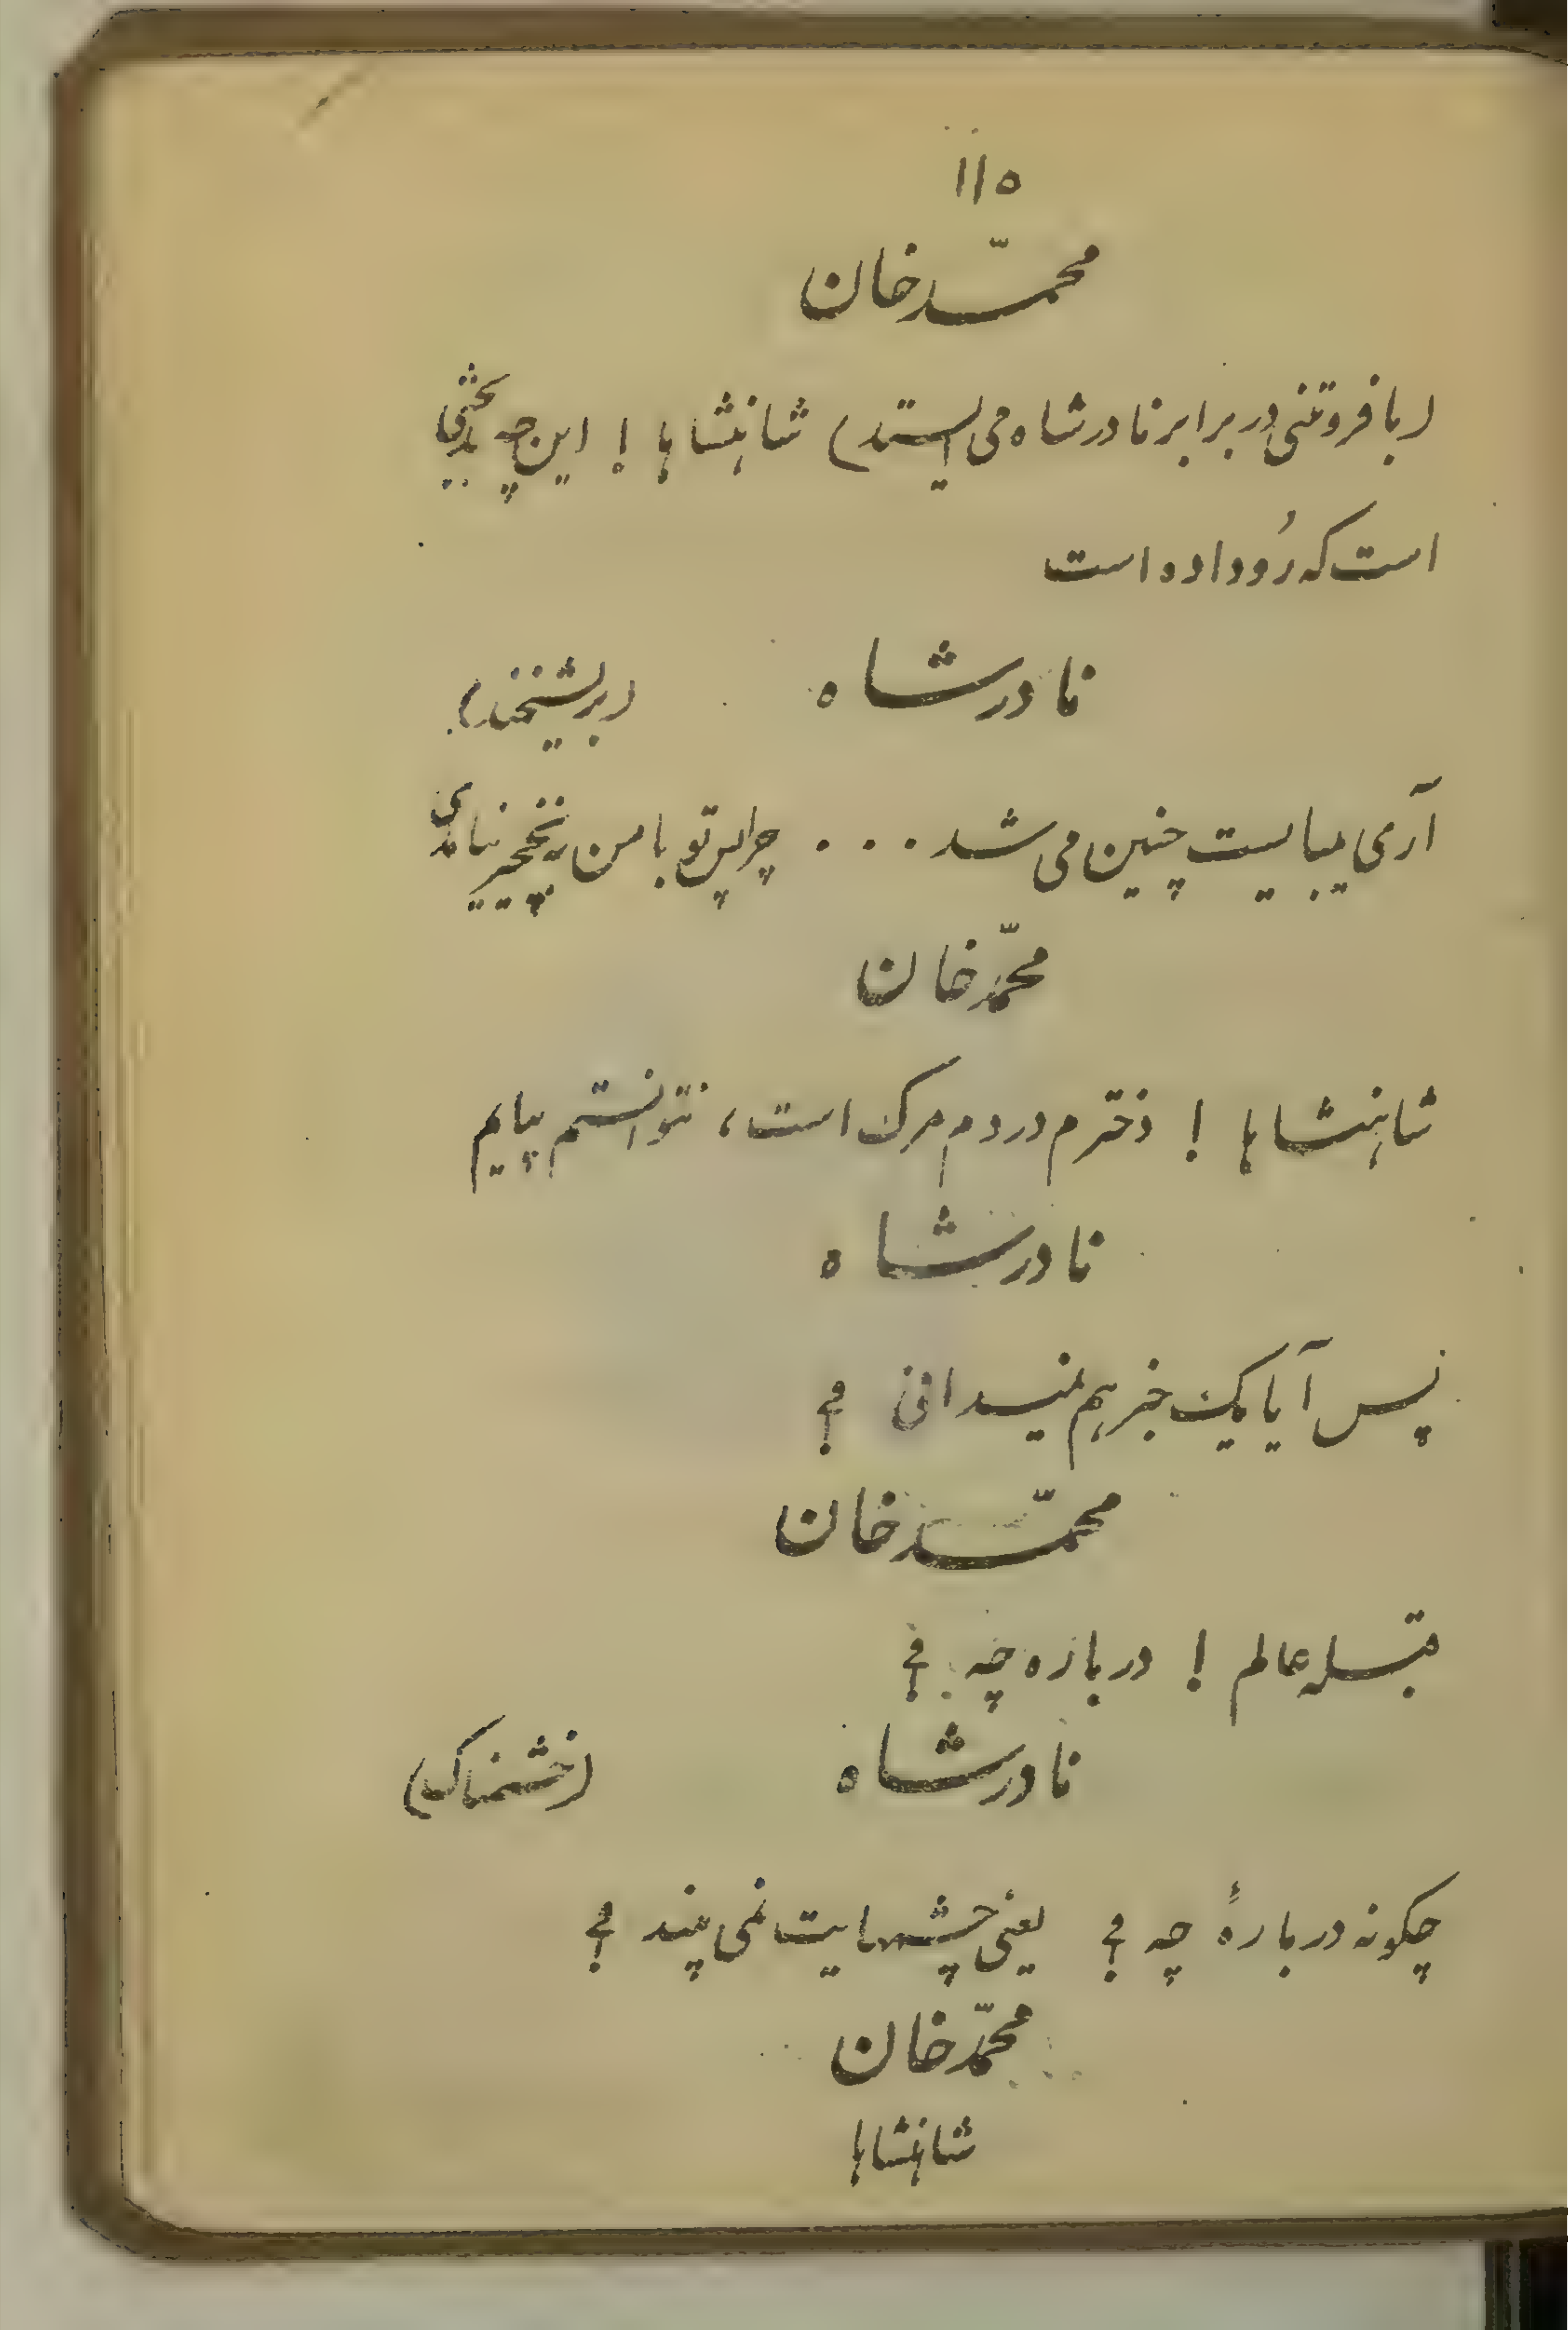 ۱۱۵
محمّد خان
(با فروتنی در برابر نادرشاه می ایستد) شاهنشاها ! این چه بدبختی
است که رُو داده است
نادرشاه (بریشخند)
آری میبایست چنین می شد ... چرا پس تو با من بنخجیر نیامدی
محمّد خان
شاهنشاها ! دخترم در دم مرک است، نتوانستم بیایم
نادرشاه
پس آیا یک خبر هم نمیدانی ؟
محمّد خان
قبله عالم ! درباره چه ؟
نادرشاه (خشمناک)
چکونه دربارهٔ چه ؟ یعنی چشمهایت نمی بیند ؟
محمّد خان
شاهنشاها